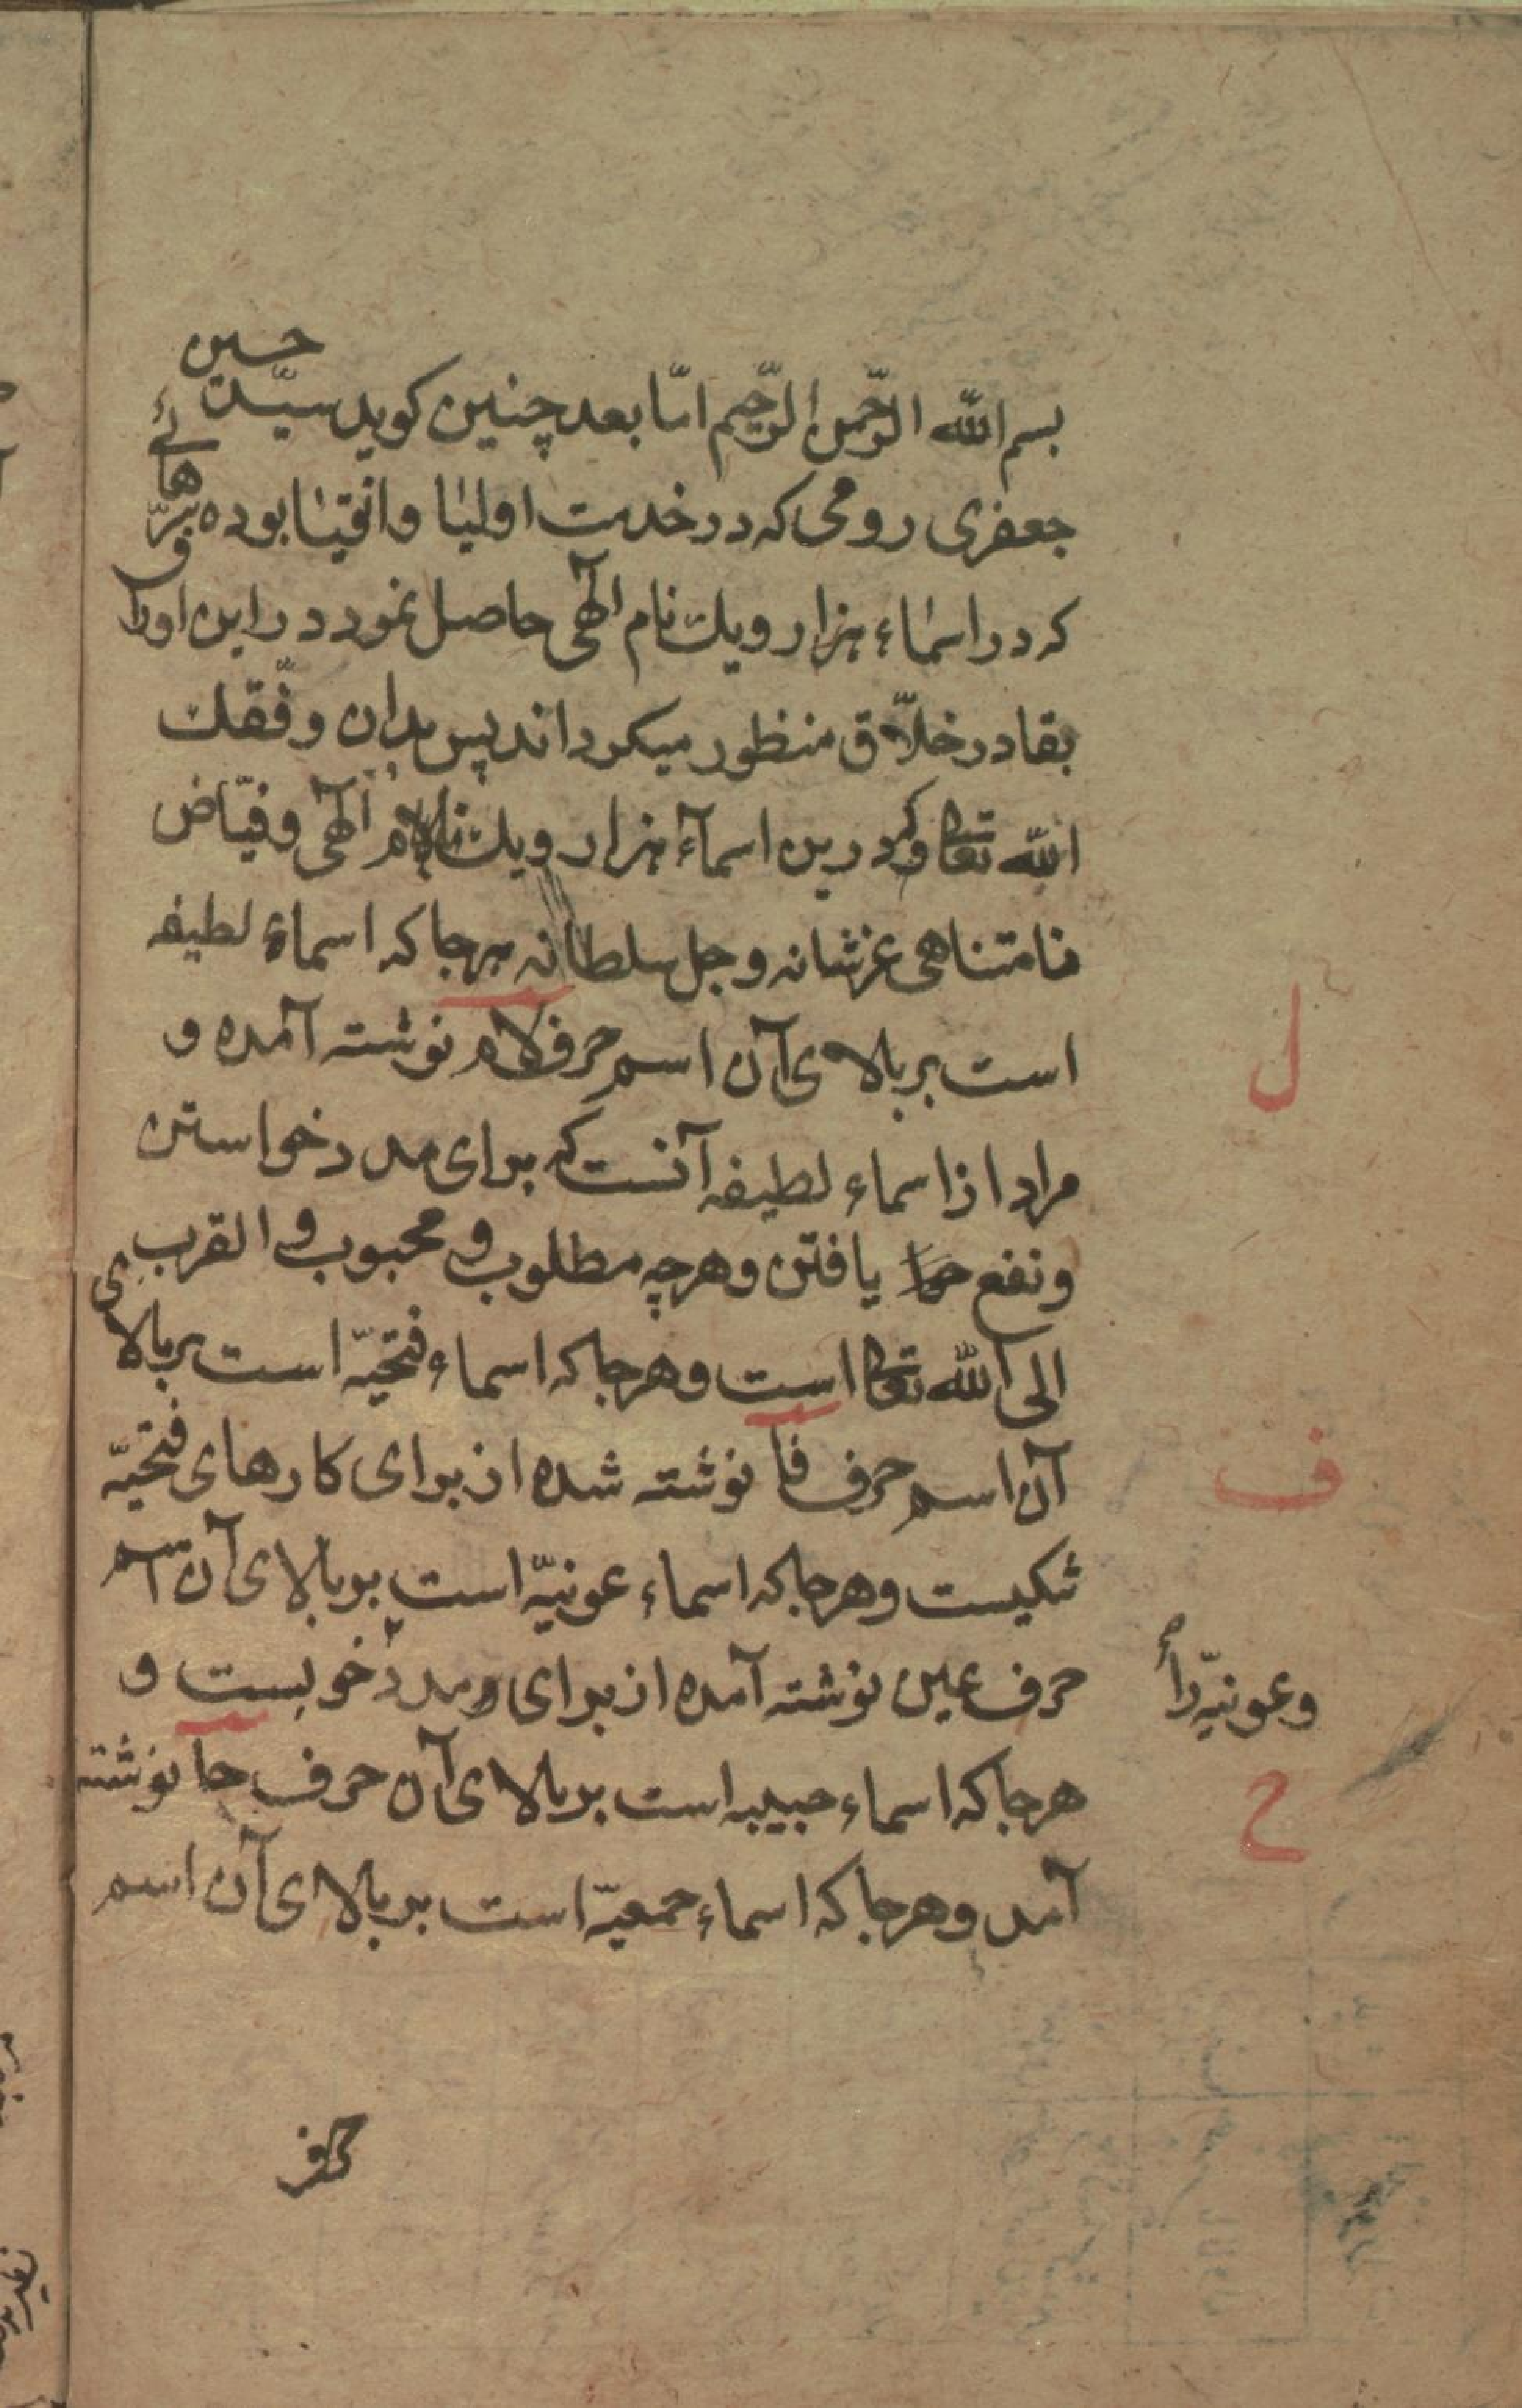 بسم الله الرّحمن الرّحیم امّا بعد چنین کوید سیّد حسین
جعفری رومی که در خدمت اولیٰا واتقیٰا بوده
که در اسمٰاء هزار ویك نام الٓهی حاصل نمود در این اوراق
بقادر خلّاق منظور میکرداند پس بدان وفّقك
الله تعالی که درین اسمآء هزار ویك نام الٓهی وفیّاض
نامتناهی عزشانه وجل سلطانه هرجا که اسماء لطیفه
است بر بالای آن اسم حرف لام نوشته آمده و
مراد از اسماء لطیفه آنست که برای مدد خواستن
ونفع یافتن وهرچه مطلوب و محبوب و القرب
الی الله تعالی است وهرجا که اسماء فتحیّه است بر بالای
آن اسم حرف فا نوشته شده از برای کارهای فتحیّه
نیکیست وهرجا که اسماء عونیّه است بر بالای آن اسم
حرف عین نوشته آمده از برای مدد خوبست و
هرجا که اسماء حبیبه است بر بالای آن حرف حا نوشته
آمد وهرجا که اسماء جمعیّه است بر بالای آن اسم
حرف
ل
ف
وعونیّه را
ح